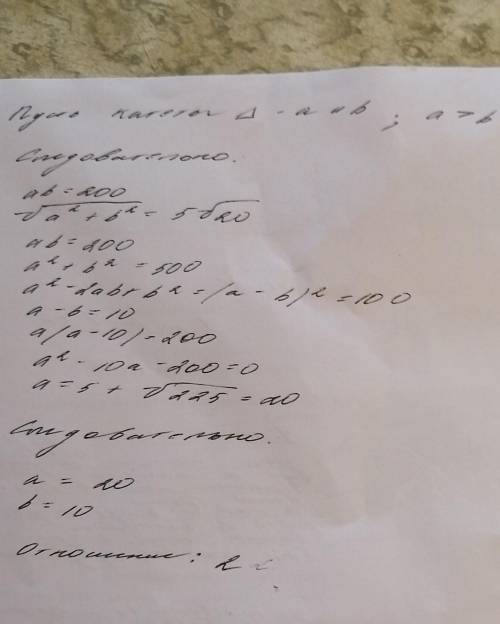 Пусть катеты Δ - a и b ; a > b
Следовательно.
ab = 200
√a² + b² = 5√20
ab = 200
a² + b² = 500
a² - 2ab + b² = (a - b)² = 100
a - b = 10
a(a - 10) = 200
a² - 10a - 200 = 0
a = 5 + √225 = 20
Следовательно.
a = 20
b = 10
Отношение : 2